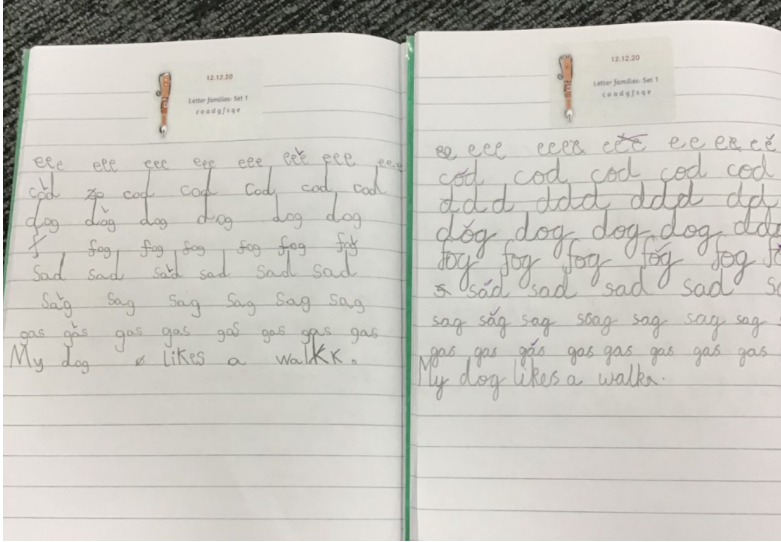 12.12.20
Letter families: Set 1
c o a d g f s q e
eee eee eee eee eee eee eee eee
cod cod cod cod cod cod
dog dog dog dog dog dog
f fog fog fog fog fog fog
sad sad sad sad sad sad
sag sag sag sag sag sag
gas gas gas gas gas gas gas gas
My dog likes a walkk.
12.12.20
Letter families: Set 1
c o a d g f s q e
ee eee eeee ee ee eee
cod cod cod cod cod
ddd ddd ddd dd
dog dog dog dog ddd
fog fog fog fog fog f
s sad sad sad sad sa
sag sag sag soag sag sag sag
gas gas gas gas gas gas gas gas
My dog likes a walk.